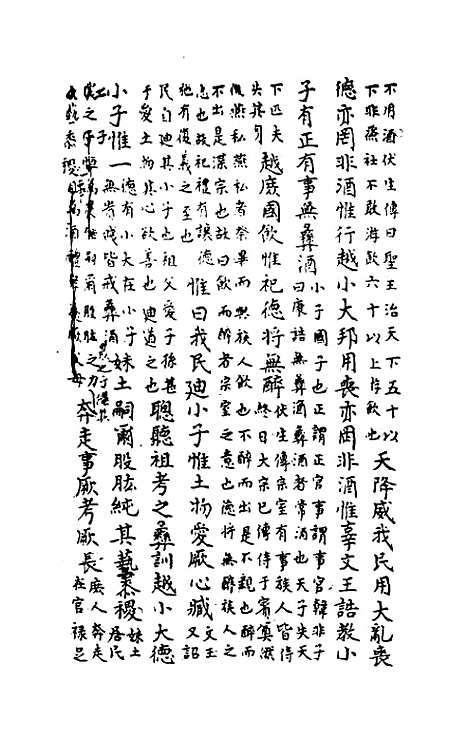 不用酒伏生傳曰聖王治天下五十以
下非烝社不敢游飲六十以上游飲也
天降威我民用大亂喪
德亦罔非酒惟行越小大邦用喪亦罔非酒惟辜文王誥教小
子有正有事無彝酒
小子國子也正謂正官事謂事官韓非子
曰康誥無彝酒彝酒者常酒也天子失天
下匹夫
失其身
越庶國飲惟祀德將無醉
伏生傳宗室有事族人皆侍
終日大宗已傳侍于賓奠然
後燕私燕私者祭畢而與族人飲也不醉而出是不親也醉而
不出是渫宗也故曰飲而醉者宗室之意也德將無醉族人之
志也故祀禮有讓德
施有復義之至也
惟曰我民迪小子惟土物愛厥心臧
文王
又詔
民自迪其小子也祖父愛子孫甚
于愛土物其心欲善也迪道之也
聰聽祖考之彝訓越小大德
小子惟一
德有小大在小子
無貴賤皆戒彝酒
妹土嗣爾股肱純其藝黍稷
妹土
居民
奔走事厥考厥長
庶人奔走
在官祿足